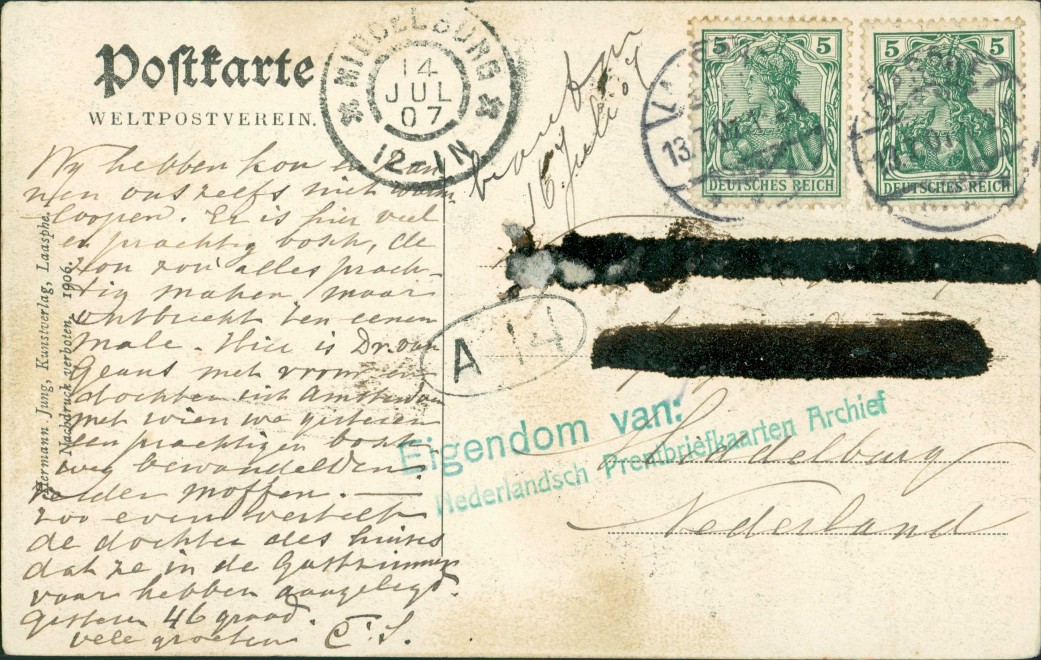 Postkarte
WELTPOSTVEREIN.
MIDDELBURG
14
JUL
07
12-1N
5 5
DEUTSCHES REICH
5 5
DEUTSCHES REICH
13.7.07
16 Juli 07
Wy hebben kou
nen ons zelfs niet warm
loopen. Er is hier veel
en prachtig bosch, de
zon zou alles prach-
tig maken, maar
ontbreekt ten eenen
male. Hier is Dr. van
Geuns met vrouw en
dochter uit Amsterdam
met wien we gisteren
een prachtigen bosch
weg bewandelden
zelden moffen. —
zoo even vertelt
de dochter des huizes
dat ze in de Gastzimmer
vuur hebben aangelegd.
Gisteren 46 graad.
vele groeten C. S.
Hermann Jung, Kunstverlag, Laasphe.
Nachdruck verboten. 1906.
A 14
Eigendom van:
Nederlandsch Prentbriefkaarten Archief
Middelburg
Nederland